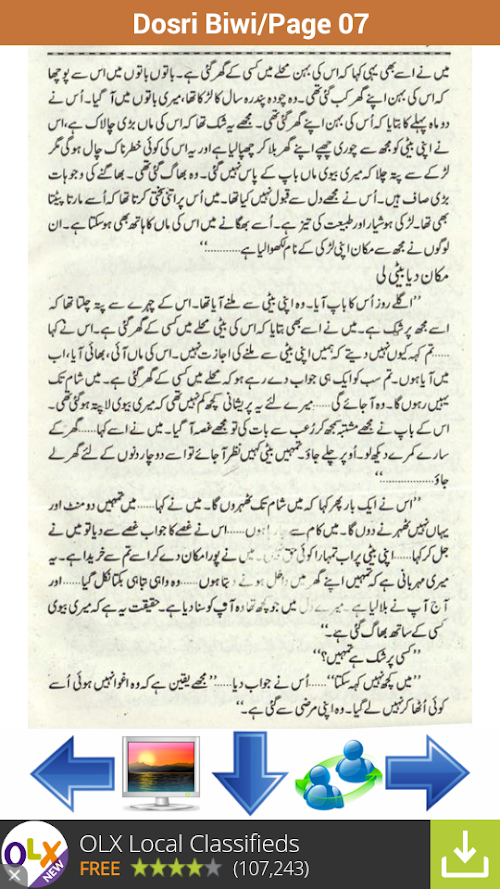 Dosri Biwi/Page 07
میں نے اسے بھی یہی کہا کہ اس کی بہن محلے میں کسی کے گھر گئی ہے۔ باتوں باتوں میں اس سے پوچھا
کہ اس کی بہن اپنے گھر کب گئی تھی۔ وہ چودہ پندرہ سال کا لڑکا تھا، میری باتوں میں آ گیا۔ اُس نے
دو ماہ پہلے کا بتایا کہ اُس کی بہن اپنے گھر گئی تھی۔ مجھے یہ شک تھا کہ اس کی ماں بڑی چالاک ہے، اس
نے اپنی بیٹی کو مجھ سے چوری چھپے اپنے گھر بلا کر چھپا لیا ہے اور یہ اس کی کوئی خطرناک چال ہو گی مگر
لڑکے سے پتہ چلا کہ میری بیوی ماں باپ کے پاس نہیں گئی۔ وہ بھاگ گئی تھی۔ بھاگنے کی وجوہات
بڑی صاف ہیں۔ اُس نے مجھے دل سے قبول نہیں کیا تھا۔ میں اُس پر اتنی سختی کرتا تھا کہ اُسے مارتا پیٹتا
بھی تھا۔ لڑکی ہوشیار اور طبیعت کی تیز ہے۔ اُسے بھگانے میں اس کی ماں کا ہاتھ بھی ہو سکتا ہے۔ ان
لوگوں نے مجھ سے مکان اپنی لڑکی کے نام لکھوا لیا ہے............“
مکان دیا بیٹی لی
”اگلے روز اُس کا باپ آیا۔ وہ اپنی بیٹی سے ملنے آیا تھا۔ اس کے چہرے سے پتہ چلتا تھا کہ
اسے مجھ پر شک ہے۔ میں نے اسے بھی بتایا کہ اس کی بیٹی محلے میں کسی کے گھر گئی ہے۔ اس نے کہا
.....تم کہہ کیوں نہیں دیتے کہ ہمیں اپنی بیٹی سے ملنے کی اجازت نہیں۔ اس کی ماں آئی، بھائی آیا، اب
میں آیا ہوں۔ تم سب کو ایک ہی جواب دے رہے ہو کہ محلے میں کسی کے گھر گئی ہے۔ میں شام تک
یہیں رہوں گا۔ وہ آ جائے گی......میرے لئے یہ پریشانی کچھ کم نہیں تھی کہ میری بیوی لاپتہ ہو گئی تھی۔
اس کے باپ نے مجھے مشتبہ سمجھ کر رُعب سے بات کی تو مجھے غصہ آ گیا۔ میں نے اسے کہا.....گھر کے
سارے کمرے دیکھ لو۔ اُوپر چلے جاؤ۔ تمہیں بیٹی کہیں نظر آ جائے تو اسے دو چار دنوں کے لئے گھر لے
جاؤ................“
”اس نے ایک بار پھر کہا کہ میں شام تک ٹھہروں گا۔ میں نے کہا......میں تمہیں دو منٹ اور
یہاں نہیں ٹھہرنے دوں گا۔ میں کام سے جا رہا ہوں......اس نے غصے کا جواب غصے سے دیا تو میں نے
جل کر کہا......اپنی بیٹی پر اب تمہارا کوئی حق نہیں۔ میں نے پورا مکان دے کر اسے تم سے خریدا ہے۔ یہ
میری مہربانی ہے کہ تمہیں اپنے گھر میں داخل ہونے دیتا ہوں......وہ واہی تباہی بکتا نکل گیا......اور
آج آپ نے بلا لیا ہے۔ میرے دل میں جو کچھ تھا وہ آپ کو سنا دیا ہے۔ حقیقت یہ ہے کہ میری بیوی
کسی کے ساتھ بھاگ گئی ہے۔“
”کسی پر شک ہے تمہیں؟“
”میں کچھ نہیں کہہ سکتا“......اُس نے جواب دیا......”مجھے یقین ہے کہ وہ اغوا نہیں ہوئی اُسے
کوئی اُٹھا کر نہیں لے گیا۔ وہ اپنی مرضی سے گئی ہے۔“
OLX NEW
OLX Local Classifieds
FREE (107,243)